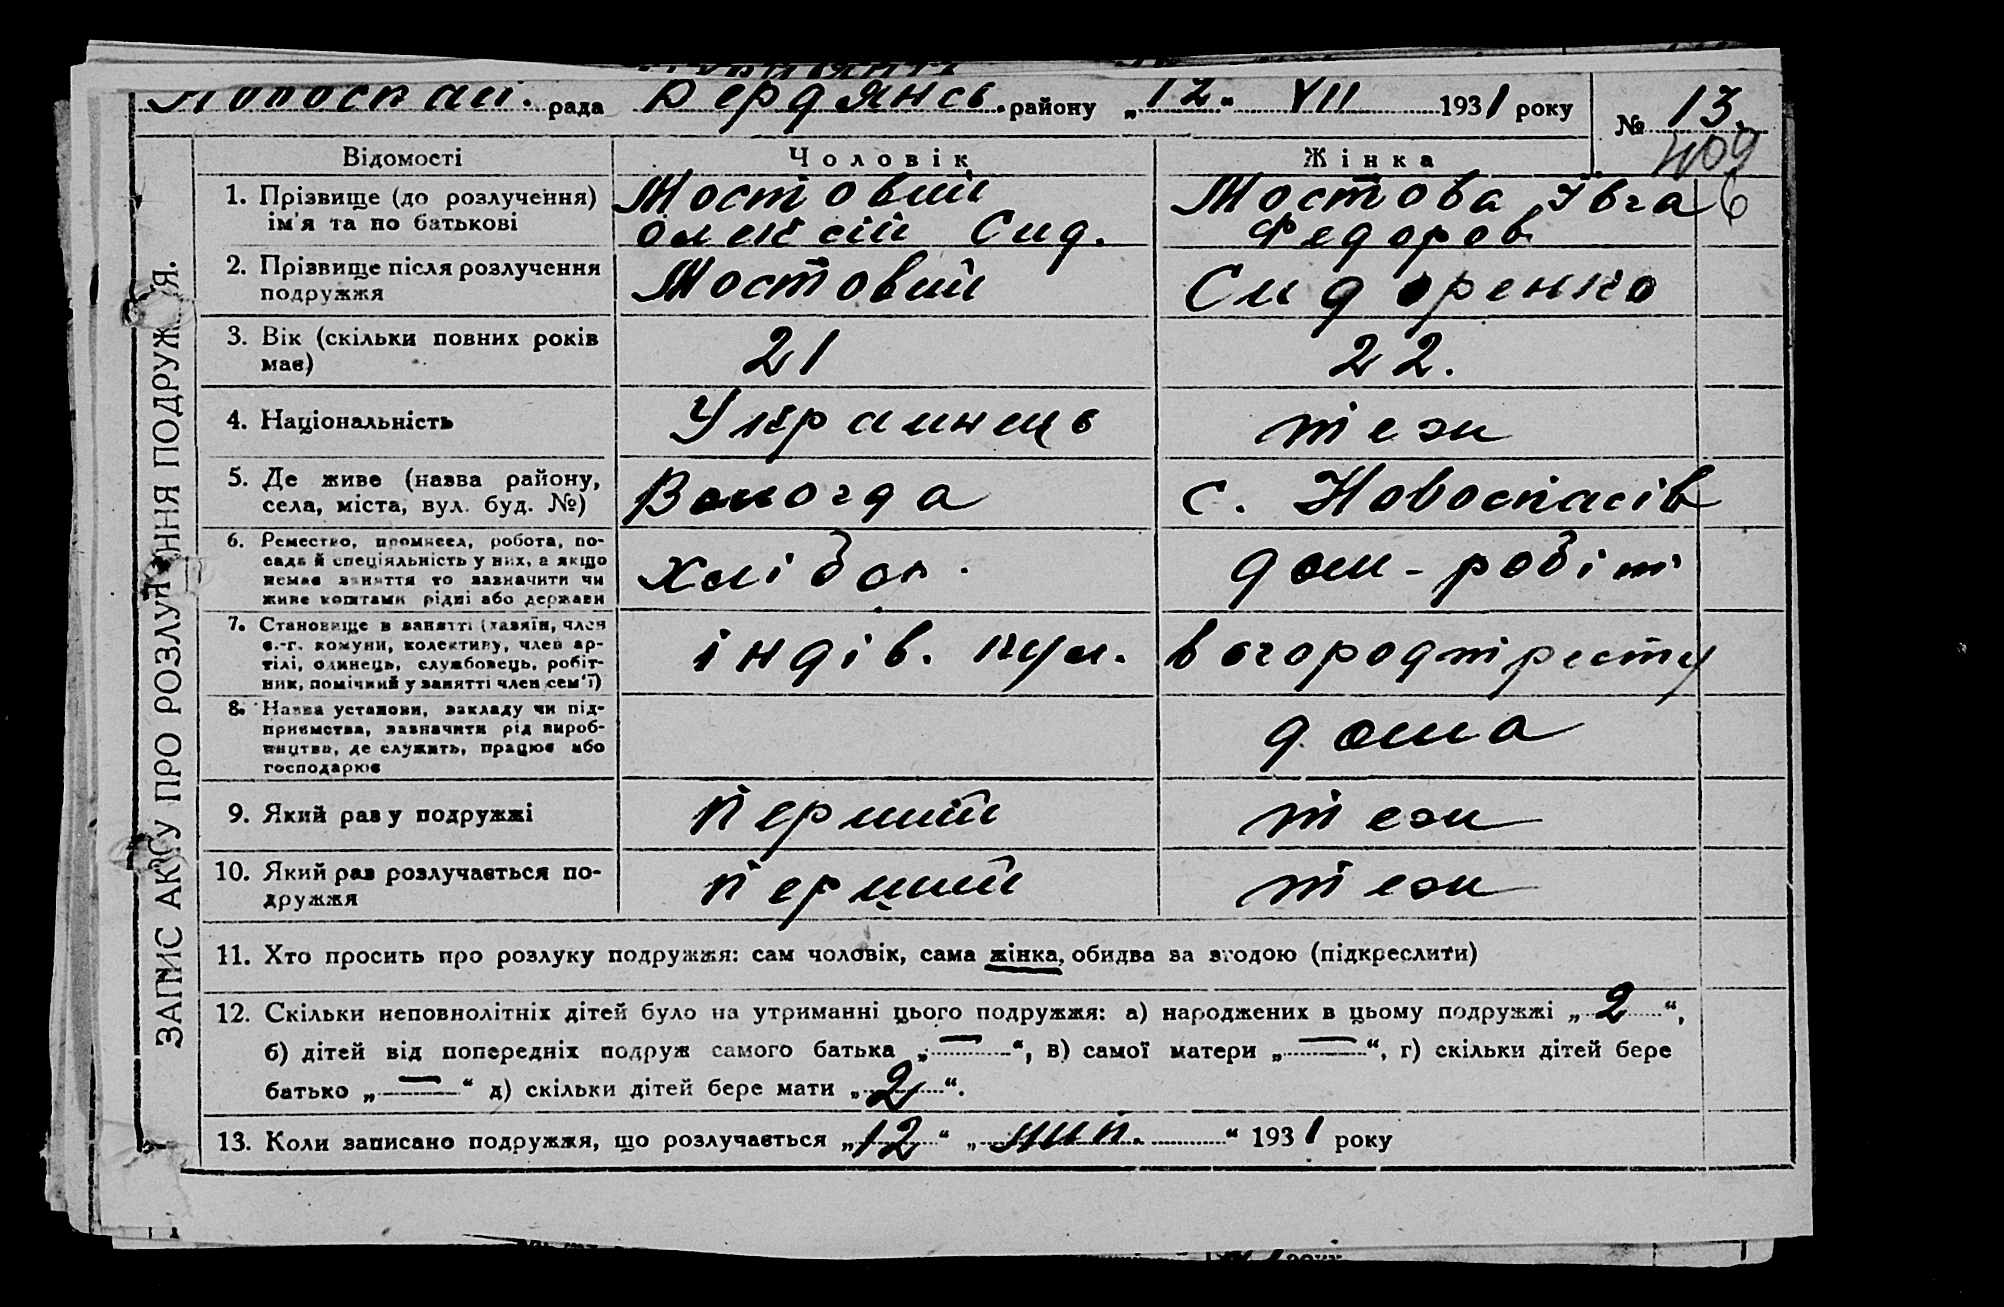 Новоспас. рада Бердянсь. району „12“ VII 1931 року
№ 13.
409
6
ЗАПИС АКТУ ПРО РОЗЛУЧЕННЯ ПОДРУЖЖЯ.
Відомості Чоловік Жінка
1. Прізвище (до розлучення) Мостовий Мостова Івга
ім'я та по батькові Олексій Сид. Федоров
2. Прізвище після розлучення Мостовий Сидоренко
подружжя
3. Вік (скільки повних років 21 22.
має)
4. Національність Украинець теж
5. Де живе (назва району, Вологда с. Новоспасів
села, міста, вул. буд. №)
6. Ремество, промисел, робота, по-
сада й спеціяльність у них, а якщо хлібоп. дом-робіт
немає заняття то зазначити чи
живе коштами рідні або держави
7. Становище в занятті (хазяїн, член
с.-г. комуни, колективу, член ар- індів. кул. в огородтресту
тілі, одинець, службовець, робіт-
ник, помічний у занятті член сем'ї)
8. Назва установи, закладу чи під-
приємства, зазначити рід вироб- дома
ництва, де служить, працює або
господарює
9. Який раз у подружжі перший теж
10. Який раз розлучається по- перший теж
дружжя
11. Хто просить про розлуку подружжя: сам чоловік, сама жінка, обидва за згодою (підкреслити)
12. Скільки неповнолітніх дітей було на утриманні цього подружжя: а) народжених в цьому подружжі „2“,
б) дітей від попередніх подруж самого батька „—“, в) самої матери „—“, г) скільки дітей бере
батько „—“ д) скільки дітей бере мати „2“.
13. Коли записано подружжя, що розлучається „12“ „лип.“ 1931 року